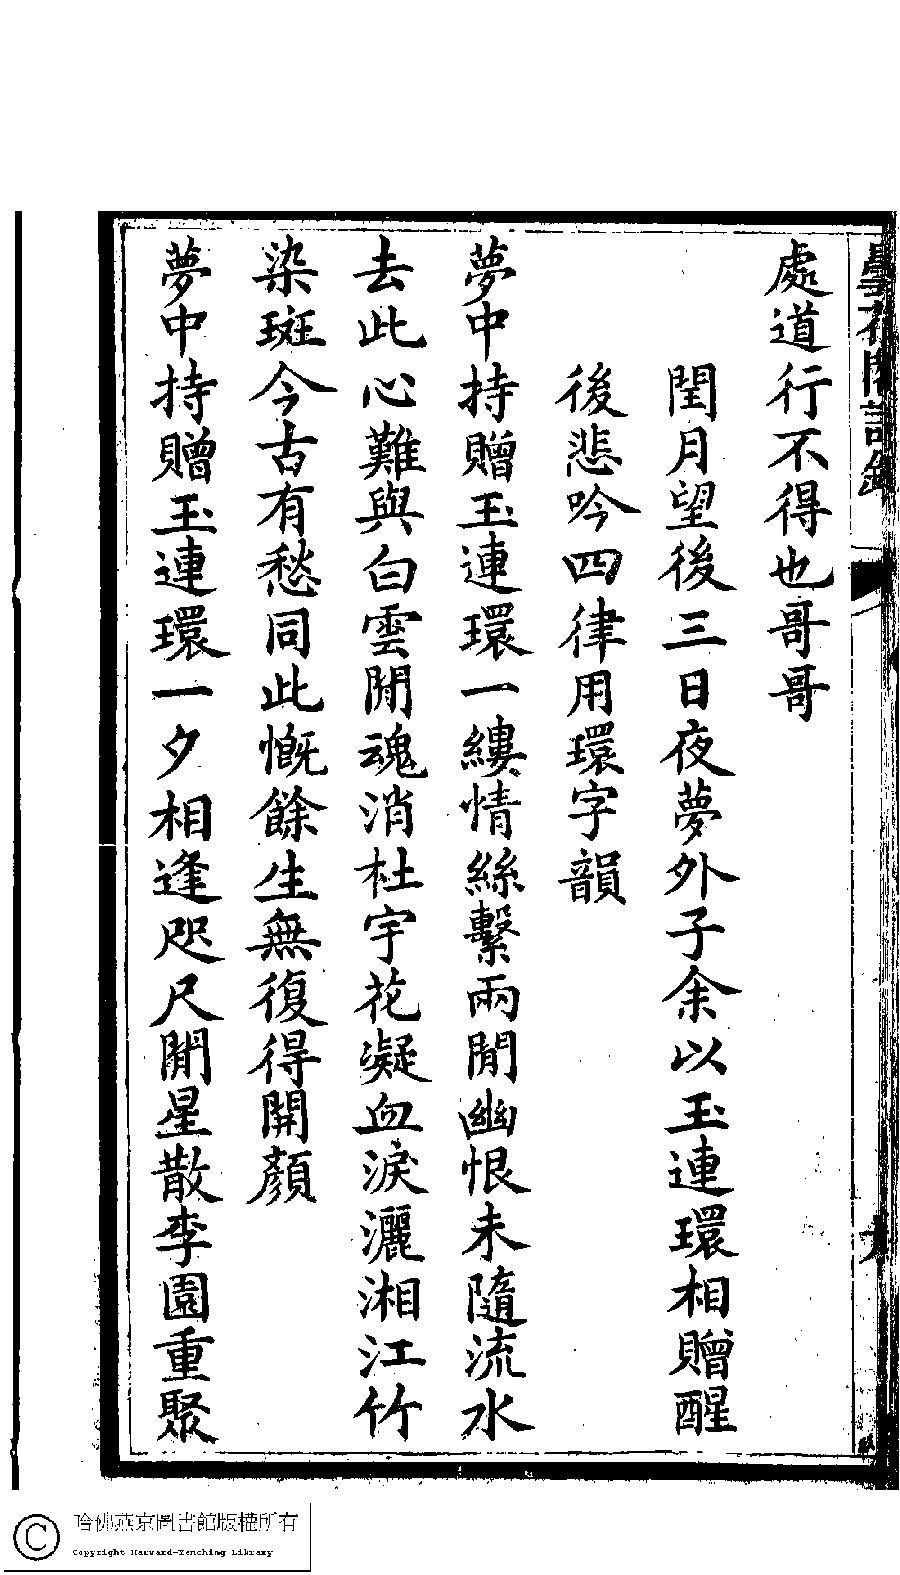 曇花閣詩鈔
處道行不得也哥哥
閏月望後三日夜夢外子余以玉連環相贈醒
後悲吟四律用環字韻
夢中持贈玉連環一縷情絲繫兩閒幽恨未隨流水
去此心難與白雲閒魂消杜宇花凝血淚灑湘江竹
染斑今古有愁同此慨餘生無復得開顏
夢中持贈玉連環一夕相逢咫尺閒星散李園重聚
哈佛燕京圖書館版權所有
Copyright Harvard-Yenching Library